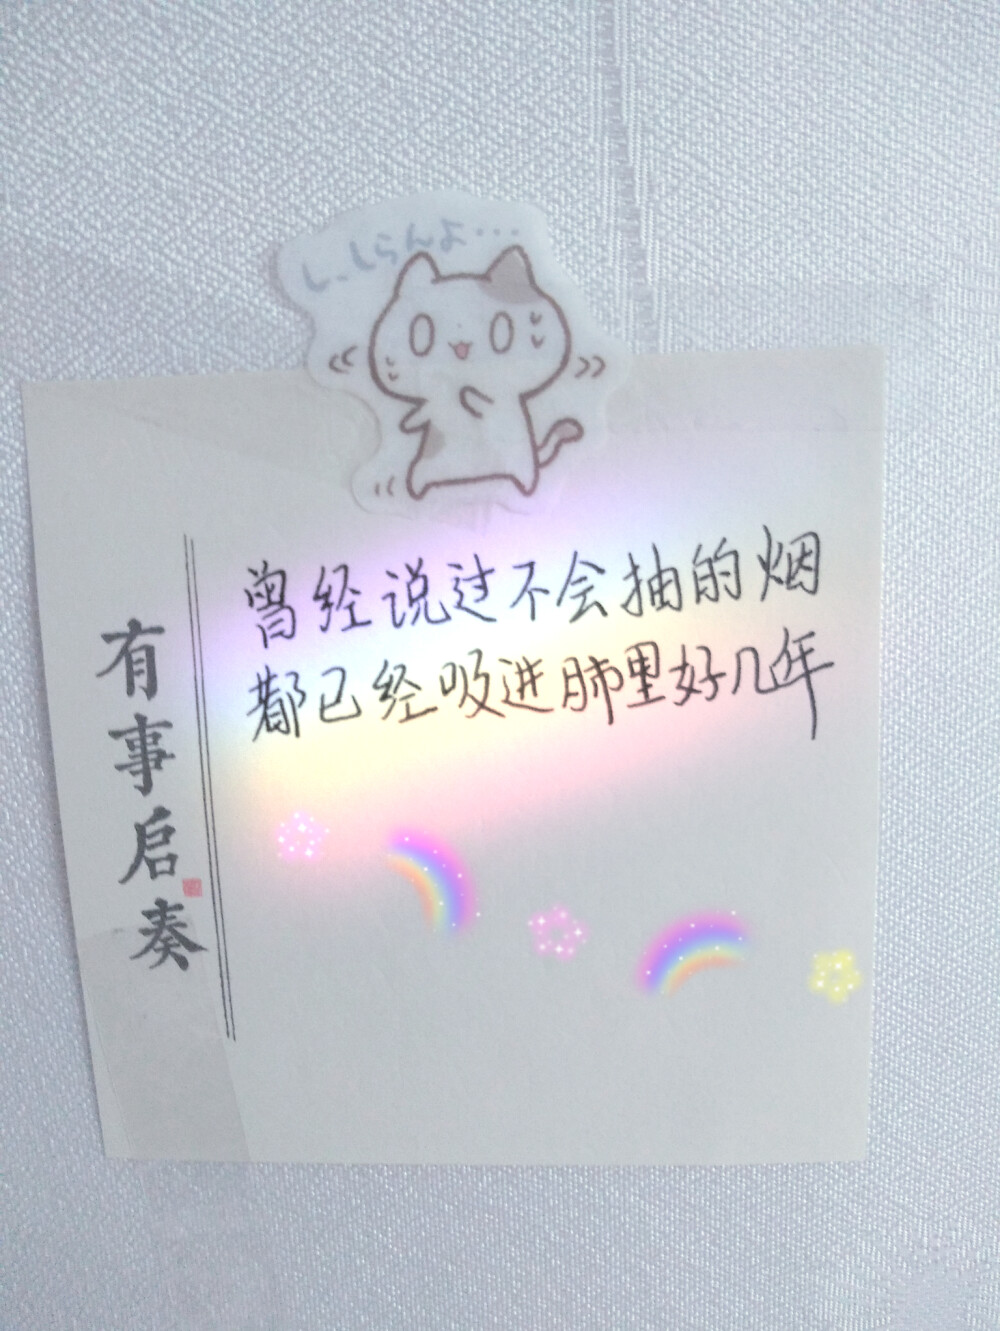 し…しらんよ…
曾经说过不会抽的烟
都已经吸进肺里好几年
有事启奏